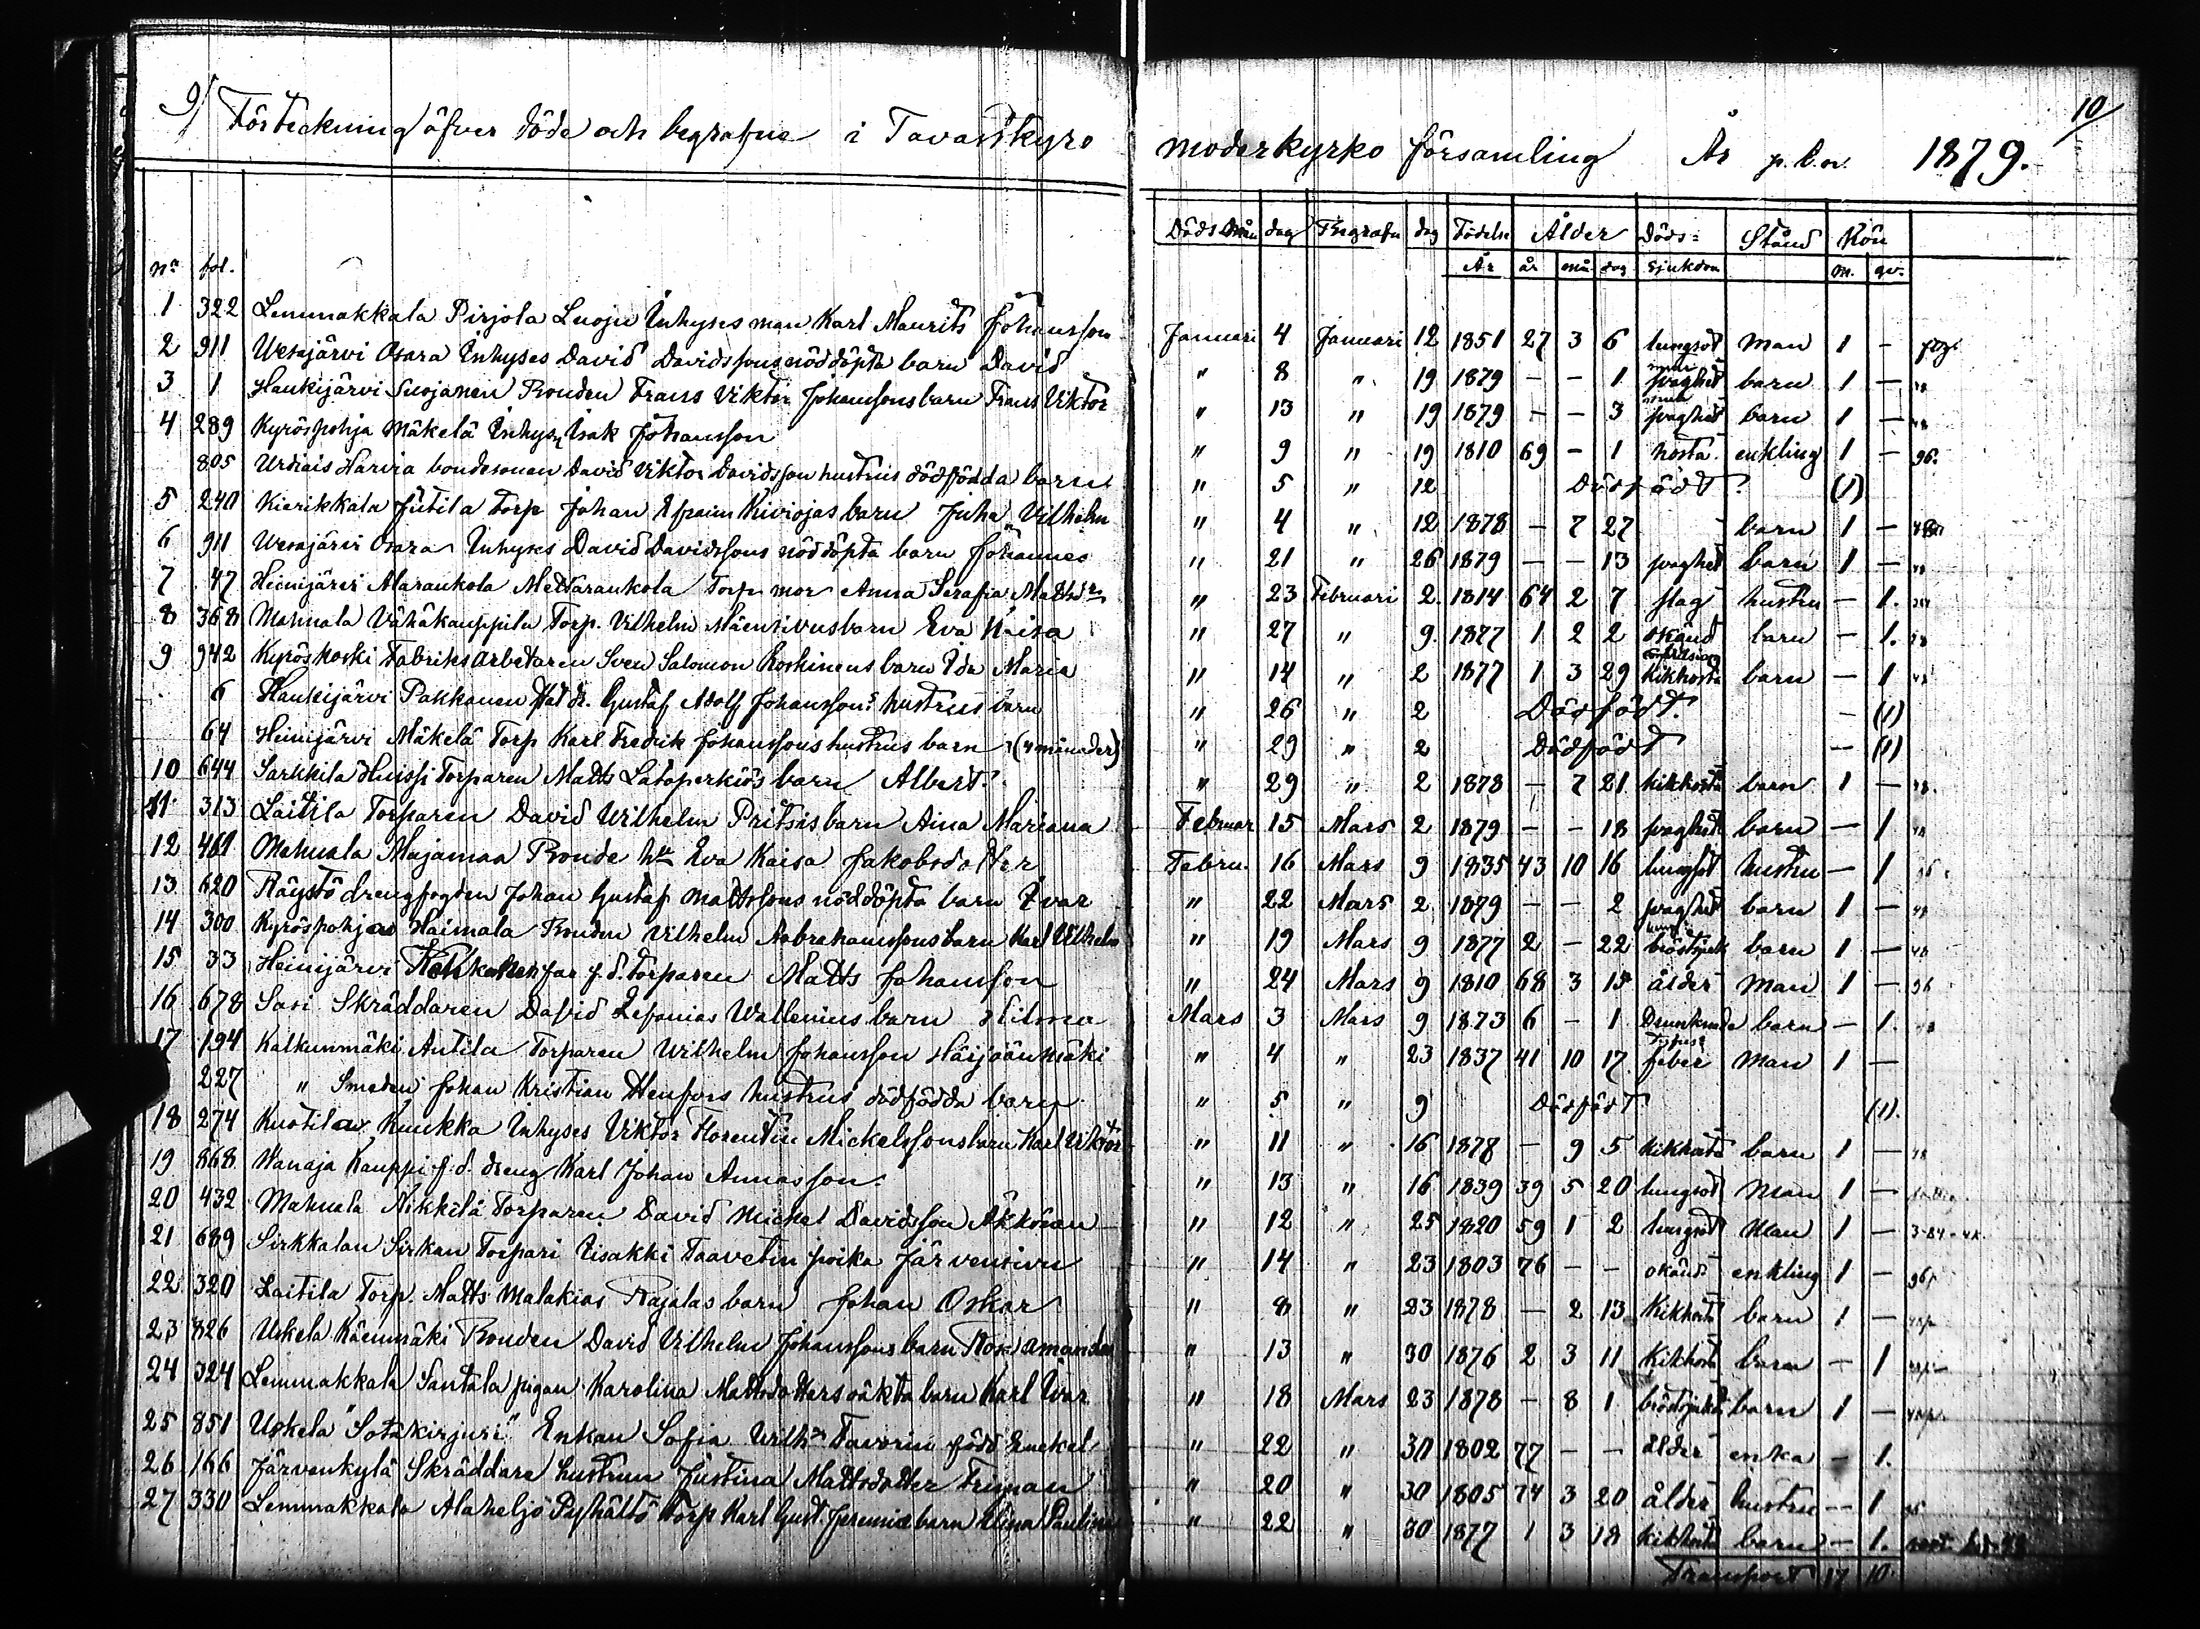 9/ Förteckning öfver döde och begrafne i Tavastkyro moderkyrko församling År 1879. 10/
Döds mån dag Begrafn dag Födelse Ålder Döds= Stånd Kön
no fol. År år mån dag sjukdom m. qv.
1 322 Lemmakkala Pirjola Luoju Inhyses man Karl Maurits Johansson Januari 4 Januari 12 1851 27 3 6 lungsot man 1 –
2 911 Wesajärvi Osara Inhyses David Davidssons nöddöpta barn David " 8 " 19 1879 – – 1 svaghet barn 1 –
3 1 Haukijärvi Suojanen Bonden Frans Viktor Johanssons barn Frans Viktor " 13 " 19 1879 – – 3 svaghet barn 1 –
4 289 Kyröspohja Mäkelä Inhys. Isak Johansson " 9 " 19 1810 69 – 1 hosta enkling 1 – 96.
805 Urdiais Harvia bondesonen David Viktor Davidsson hustrus dödfödda barn " 5 " 12 Dödfödt (1)
5 240 Kierikkala Jutila Torp Johan Efraim Kiviojas barn Juha Vilhelm " 4 " 12 1878 – 7 27 barn 1 –
6 911 Wesajärvi Osara Inhyses David Davidssons nöddöpta barn Johannes " 21 " 26 1879 – – 13 svaghet barn 1 –
7 47 Heinijärvi Alaraukola Mettäraukola Torp mor Anna Serafia Mattsdr " 23 Februari 2. 1814 64 2 7 slag hustru – 1.
8 368 Mahnala Vähäkauppila Torp. Vilhelm Mäensivus barn Eva Kaisa " 27 " 9. 1877 1 2 2 okänd barn – 1.
9 942 Kyröskoski Fabriksarbetaren Sven Salomon Koskinens barn Ida Maria " 14 " 2 1877 1 3 29 kikhosta barn – 1
6 Haukijärvi Pakkanen Gustaf Adolf Johanssons hustrus barn " 26 " 2 Dödfödt. – (1)
64 Heinijärvi Mäkelä Torp Karl Fredrik Johanssons hustrus barn " 29 " 2 Dödfödt – (1)
10 644 Sarkkila Huissi Torparen Matts Latoperkiös barn Albert. " 29 " 2 1878 – 7 21 kikhosta barn 1 –
11 313 Laitila Torparen David Wilhelm Pritsis barn Aina Mariana Februar 15 Mars 2 1879 – – 18 svaghet barn – 1
12 469 Mahnala Majamaa Bonde hu Eva Kaisa Jakobsdotter Febru. 16 Mars 9 1835 43 10 16 lungsot hustru – 1
13 620 Räystö drengfogden Johan Gustaf Mattssons nöddöpta barn Ivar " 22 Mars 2 1879 – – 2 svaghet barn 1 –
14 300 Kyröspohja Haimala Bonden Vilhelm Aabrahamssons barn Karl Vilhelm " 19 Mars 9 1877 2 – 22 bröstsjuk barn 1 –
15 33 Heinijärvi f.d. Torparen Matts Johansson " 24 Mars 9 1810 68 3 15 ålder Man 1 – 96
16 678 Sasi Skräddaren David Zefanias Wallenius barn Hilma Mars 3 Mars 9 1873 6 – 1 Drunknade barn – 1.
17 194 Kalkunmäki Antila Torparen Wilhelm Johansson Häijäänmäki " 4 " 23 1837 41 10 17 feber Man 1 –
227 " Smeden Johan Kristian Stenfors hustrus dödfödda barn " 5 " 9 Dödfödt (1).
18 274 Kuotila Kuukka Inhyses Viktor Florentin Mickelssons barn Karl Viktor " 11 " 16 1878 – 9 5 kikhosta barn 1 –
19 868 Wanaja Kauppi f.d. dreng Karl Johan Annasson " 13 " 16 1839 39 5 20 lungsot Man 1 –
20 432 Mahnala Nikkilä Torparen David Mickel Davidsson Äkköinen " 12 " 25 1820 59 1 2 lungsot Man 1 –
21 689 Sirkkalan Sirkan Torpari Iisakki Taavetin poika Järvensivu " 14 " 23 1803 76 – – okänd enkling 1 –
22 320 Laitila Torp. Matts Malakias Rajalas barn Johan Oskar " 8 " 23 1878 – 2 13 Kikhosta barn 1 –
23 826 Uskela Käenmäki Bonden David Vilhelm Johanssons barn Rosa Amanda " 13 " 30 1876 2 3 11 Kikhosta barn – 1
24 324 Lemmakkala Santala pigan Karolina Mattsdotters oäkta barn Karl Ivar " 18 Mars 23 1878 – 8 1 bröstsjuk barn 1 –
25 851 Uskela "Sotakirjuri" Enkan Sofia Vilh. Tavorin född " 22 " 30 1802 77 – – ålder enka – 1.
26 166 Järvenkylä Skräddare hustrun Justina Mattsdotter Friman " 20 " 30 1805 74 3 20 ålder hustru – 1
27 330 Lemmakkala Torp Karl Gust. Jeremias barn Elina Paulina " 22 " 30 1877 1 3 18 kikhosta barn – 1.
Transport 17 10